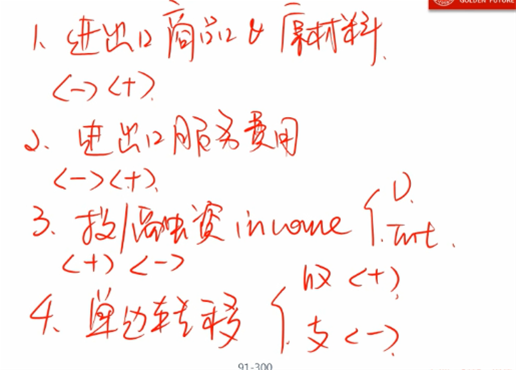 GOLDEN FUTURE
1. 进出口商品& 原材料.
<-> <+>.
2. 进出口服务费用
<-> <+>.
3. 投/融资 income { D.
Int.
<+> <->
4. 单边转移 { 收 <+>
支 <->
91-300